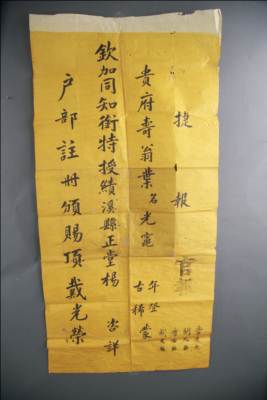 捷報
貴府壽翁葉名光寵 年登古稀蒙
欽加同知銜特授績溪縣正堂楊 咨詳
戶部註冊頒賜頂戴光榮
官報